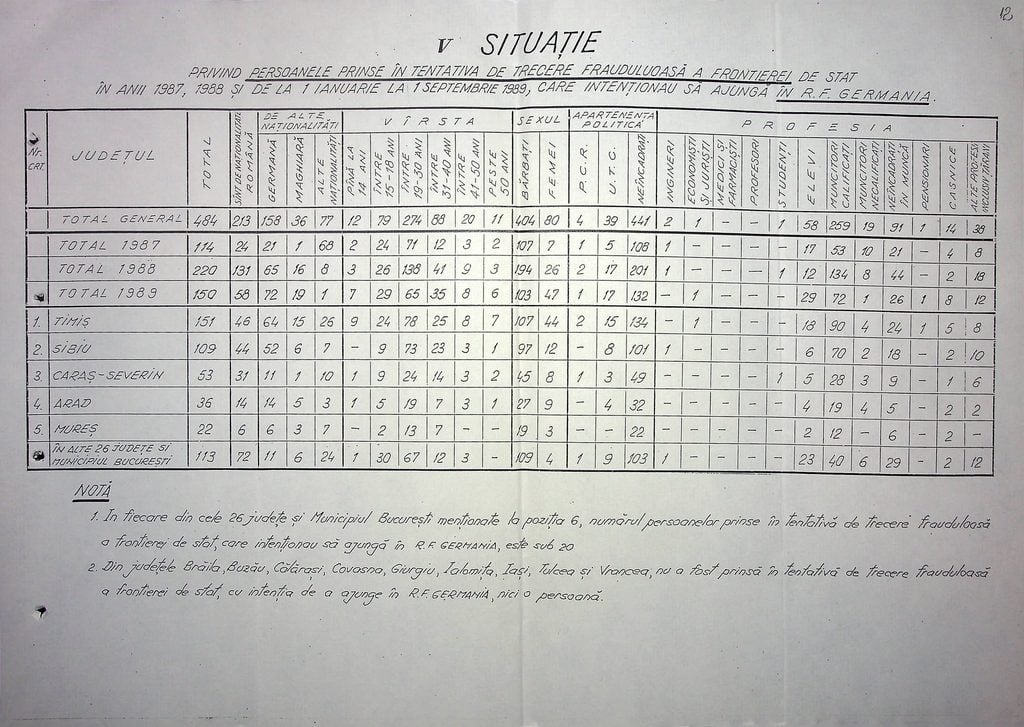 12
V SITUAȚIE
PRIVIND PERSOANELE PRINSE ÎN TENTATIVA DE TRECERE FRAUDULUOASĂ A FRONTIEREI DE STAT
ÎN ANII 1987, 1988 ȘI DE LA 1 IANUARIE LA 1 SEPTEMBRIE 1989, CARE INTENȚIONAU SĂ AJUNGĂ ÎN R.F. GERMANIA.
Nr. CRT. JUDEȚUL TOTAL DE NAȚIONALITATE ROMÂNĂ DE ALTE NAȚIONALITĂȚI VÎRSTA SEXUL APARTENENȚA POLITICĂ PROFESIA
GERMANĂ MAGHIARĂ ALTE NAȚIONALITĂȚI PÎNĂ LA 14 ANI ÎNTRE 15-18 ANI ÎNTRE 19-30 ANI ÎNTRE 31-40 ANI ÎNTRE 41-50 ANI PESTE 50 ANI BĂRBAȚI FEMEI P.C.R. U.T.C. NEÎNCADRAȚI INGINERI ECONOMIȘTI ȘI JURIȘTI MEDICI ȘI FARMACIȘTI PROFESORI STUDENȚI ELEVI MUNCITORI CALIFICAȚI MUNCITORI NECALIFICAȚI NEÎNCADRAȚI ÎN MUNCĂ PENSIONARI CASNICE ALTE PROFESII
TOTAL GENERAL 484 213 158 36 77 12 79 274 88 20 11 404 80 4 39 441 2 1 - - 1 58 259 19 91 1 14 38
TOTAL 1987 114 24 21 1 68 2 24 71 12 3 2 107 7 1 5 108 1 - - - - 17 53 10 21 - 4 8
TOTAL 1988 220 131 65 16 8 3 26 138 41 9 3 194 26 2 17 201 1 - - - 1 12 134 8 44 - 2 18
TOTAL 1989 150 58 72 19 1 7 29 65 35 8 6 103 47 1 17 132 - 1 - - - 29 72 1 26 1 8 12
1. TIMIȘ 151 46 64 15 26 9 24 78 25 8 7 107 44 2 15 134 - 1 - - - 18 90 4 24 1 5 8
2. SIBIU 109 44 52 6 7 - 9 73 23 3 1 97 12 - 8 101 1 - - - - 6 70 2 18 - 2 10
3. CARAȘ-SEVERIN 53 31 11 1 10 1 9 24 14 3 2 45 8 1 3 49 - - - - 1 5 28 3 9 - 1 6
4. ARAD 36 14 14 5 3 1 5 19 7 3 1 27 9 - 4 32 - - - - - 4 19 4 5 - 2 2
5. MUREȘ 22 6 6 3 7 - 2 13 7 - - 19 3 - - 22 - - - - - 2 12 - 6 - 2 -
ÎN ALTE 26 JUDEȚE ȘI MUNICIPIUL BUCUREȘTI 113 72 11 6 24 1 30 67 12 3 - 109 4 1 9 103 1 - - - - 23 40 6 29 - 2 12
NOTĂ
1. In fiecare din cele 26 județe și Municipiul București menționate la poziția 6, numărul persoanelor prinse în tentativă de trecere frauduloasă
a frontierei de stat, care intenționau să ajungă în R.F. GERMANIA, este sub 20
2. Din județele Brăila, Buzău, Călărași, Covasna, Giurgiu, Ialomița, Iași, Tulcea și Vrancea, nu a fost prinsă în tentativă de trecere frauduloasă
a frontierei de stat, cu intenția de a ajunge în R.F. GERMANIA, nici o persoană.